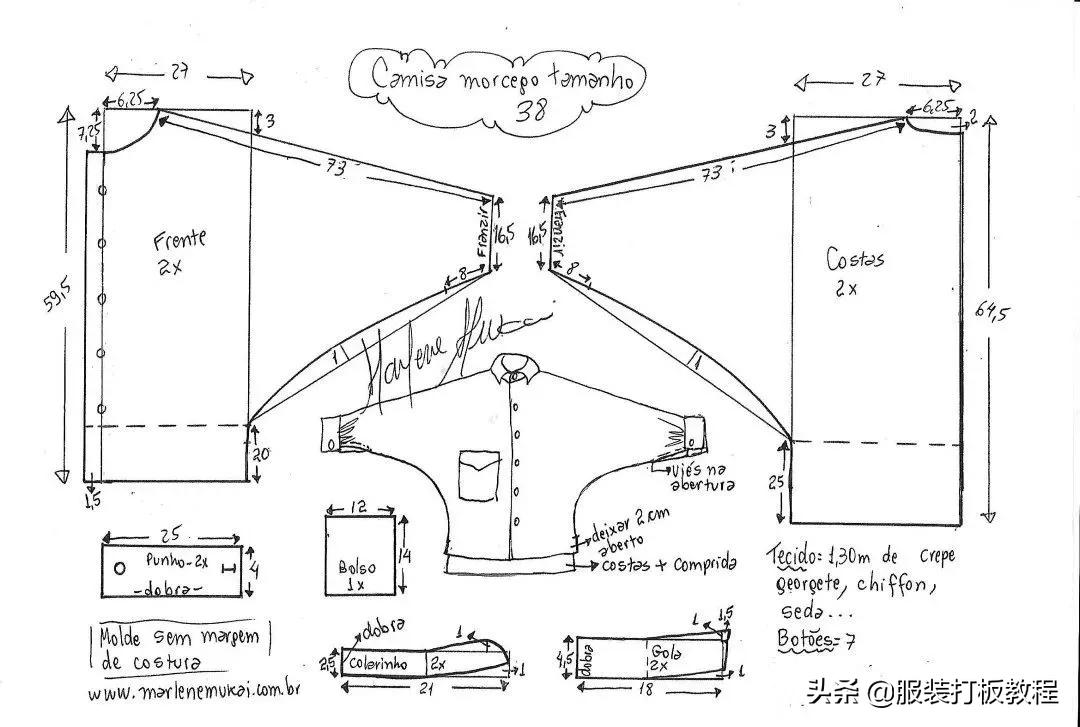 Camisa morcego tamanho
38
27
6,25
7,25
3
73
Franzir
16,5
8
1
Frente
2x
59,5
20
1,5
27
6,25
2
3
73
Franzir
16,5
8
1
Costas
2x
64,5
25
Marlene Mukai
viés na
abertura
deixar 2 cm
aberto
costas + comprida
25
Punho-2x
-dobra-
4
12
Bolso
1x
14
Tecido= 1,30m de crepe
georgete, chiffon,
seda...
Botões= 7
Molde sem margem
de costura
www.marlenemukai.com.br
dobra
1
2,5
colarinho
2x
1
21
1
1,5
4,5
dobra
Gola
2x
1
18
头条 @服装打板教程